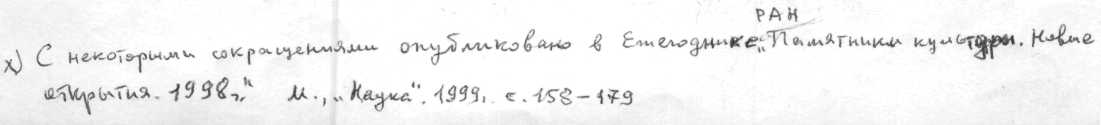 РАН
х) С некоторыми сокращениями опубликовано в Ежегоднике „Памятники культуры. Новые
открытия. 1998г." М., „Наука". 1999. с. 158-179